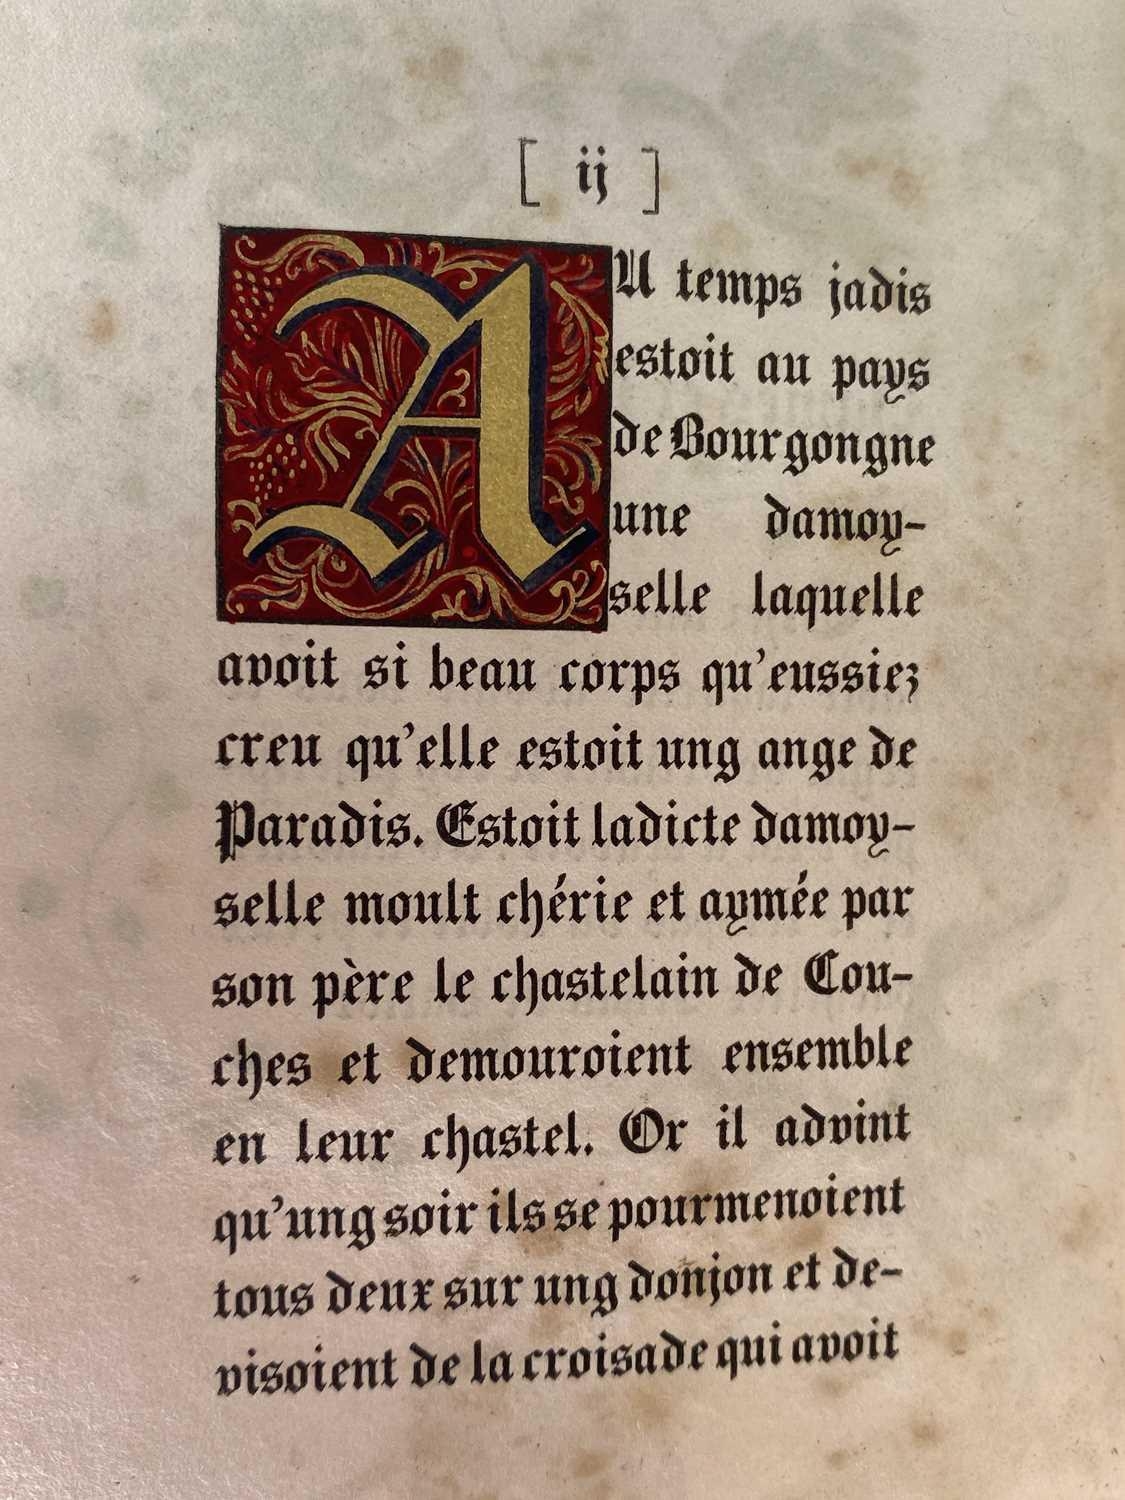 [ ij ]
AU temps jadis
estoit au pays
de Bourgongne
une damoy-
selle laquelle
avoit si beau corps qu'eussiez
creu qu'elle estoit ung ange de
Paradis. Estoit ladicte damoy-
selle moult chérie et aymée par
son père le chastelain de Cou-
ches et demouroient ensemble
en leur chastel. Or il advint
qu'ung soir ils se pourmenoient
tous deux sur ung donjon et de-
visoient de la croisade qui avoit